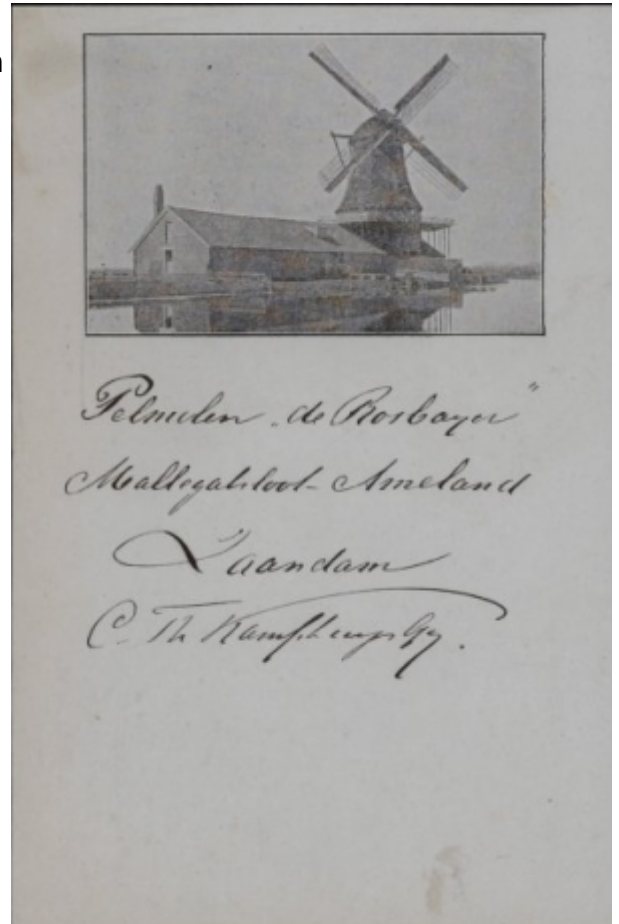 Pelmolen „de Rosbayer”
Mallegatsloot - Ameland
Zaandam
C. Th Kamphuys Gz.